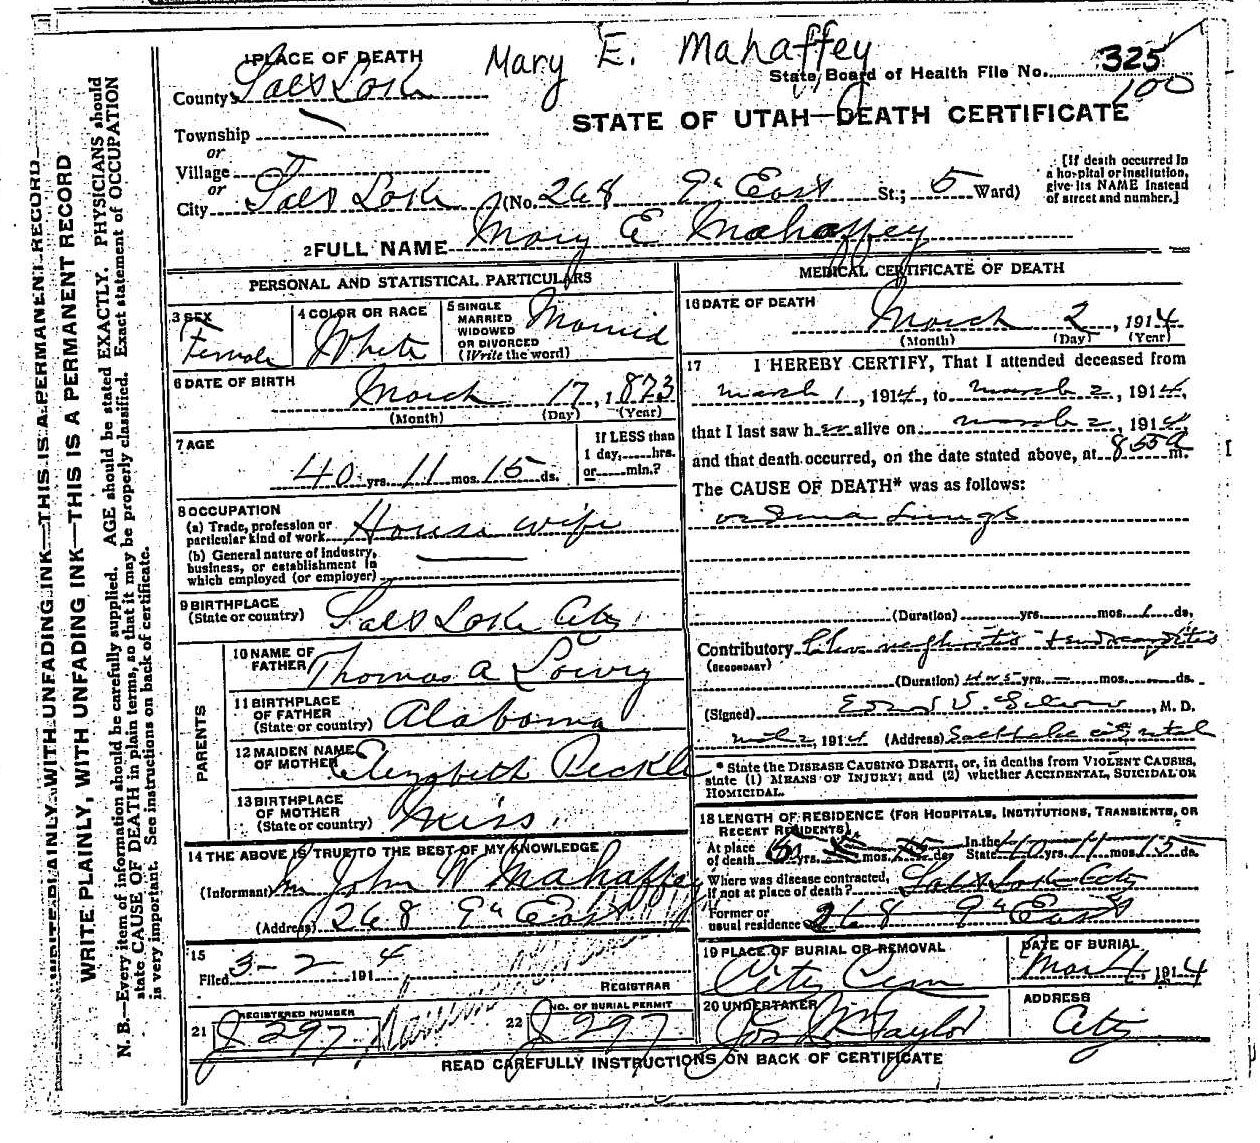 Mary E. Mahaffey
1 PLACE OF DEATH
State Board of Health File No. 325
100
County Salt Lake
STATE OF UTAH—DEATH CERTIFICATE
Township
or
Village
or
City Salt Lake (No. 268 9th East St.; 5 Ward)
[If death occurred in
a hospital or institution,
give its NAME instead
of street and number.]
2 FULL NAME Mary E Mahaffey
PERSONAL AND STATISTICAL PARTICULARS
3 SEX
Female
4 COLOR OR RACE
White
5 SINGLE
MARRIED
WIDOWED
OR DIVORCED
(Write the word)
Married
6 DATE OF BIRTH
March 17, 1873
(Month) (Day) (Year)
7 AGE
40 yrs. 11 mos. 15 ds.
If LESS than
1 day, hrs.
or min.?
8 OCCUPATION
(a) Trade, profession or
particular kind of work House wife
(b) General nature of industry,
business, or establishment in
which employed (or employer)
9 BIRTHPLACE
(State or country) Salt Lake City
PARENTS
10 NAME OF
FATHER Thomas A Lowry
11 BIRTHPLACE
OF FATHER
(State or country) Alabama
12 MAIDEN NAME
OF MOTHER Elizabeth
13 BIRTHPLACE
OF MOTHER
(State or country) Miss.
14 THE ABOVE IS TRUE TO THE BEST OF MY KNOWLEDGE
(Informant) John W Mahaffey
(Address) 268 9th East
15
Filed 3-2, 1914
REGISTRAR
21 REGISTERED NUMBER
J 297
22 NO. OF BURIAL PERMIT
J 297
MEDICAL CERTIFICATE OF DEATH
16 DATE OF DEATH
March 2, 1914
(Month) (Day) (Year)
17 I HEREBY CERTIFY, That I attended deceased from
march 1, 1914, to march 2, 1914,
that I last saw her alive on march 2, 1914,
and that death occurred, on the date stated above, at 855 a m.
The CAUSE OF DEATH* was as follows:
oedema Lungs
(Duration) yrs. mos. 1 ds.
Contributory nephritis + endocarditis
(SECONDARY)
(Duration) yrs. mos. ds.
(Signed) M. D.
1914 (Address) Salt Lake City Utah
* State the DISEASE CAUSING DEATH, or, in deaths from VIOLENT CAUSES,
state (1) MEANS OF INJURY; and (2) whether ACCIDENTAL, SUICIDAL OR
HOMICIDAL.
18 LENGTH OF RESIDENCE (FOR HOSPITALS, INSTITUTIONS, TRANSIENTS, OR
RECENT RESIDENTS)
At place
of death yrs. mos. ds. In the
State 40 yrs. 11 mos. 15 ds.
Where was disease contracted,
if not at place of death? Salt Lake City
Former or
usual residence 268 9th East
19 PLACE OF BURIAL OR REMOVAL
City Cem
DATE OF BURIAL
Mar 4, 1914
20 UNDERTAKER
Jos Wm Taylor
ADDRESS
City
READ CAREFULLY INSTRUCTIONS ON BACK OF CERTIFICATE
WRITE PLAINLY, WITH UNFADING INK—THIS IS A PERMANENT RECORD
WRITE PLAINLY, WITH UNFADING INK—THIS IS A PERMANENT RECORD
N. B.—Every item of information should be carefully supplied. AGE should be stated EXACTLY. PHYSICIANS should
state CAUSE OF DEATH in plain terms, so that it may be properly classified. Exact statement of OCCUPATION
is very important. See instructions on back of certificate.